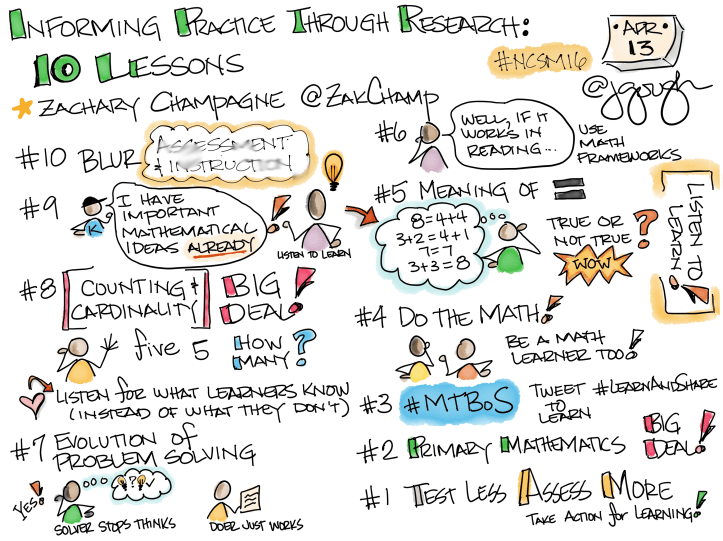 INFORMING PRACTICE THROUGH RESEARCH:
10 LESSONS
#NCSM16
APR
13
@jgough
ZACHARY CHAMPAGNE @ZAKCHAMP
#10 BLUR ASSESSMENT
& INSTRUCTION
#9
I HAVE
IMPORTANT
MATHEMATICAL
IDEAS ALREADY
K
LISTEN TO LEARN
#8 COUNTING &
CARDINALITY
BIG
DEAL!
five 5
HOW
MANY?
LISTEN for WHAT LEARNERS KNOW
(INSTEAD OF WHAT THEY DON'T)
#7 EVOLUTION of
PROBLEM SOLVING
YES!
?
SOLVER STOPS THINKS
DOER JUST WORKS
#6
WELL, IF IT
WORKS IN
READING...
USE
MATH
FRAMEWORKS
#5 MEANING OF =
8=4+4
3+2=4+1
7=7
3+3=8
TRUE OR
NOT TRUE?
WOW
LISTEN TO
LEARN!
#4 DO THE MATH!
BE A MATH
LEARNER TOO!
#3 #MTBoS
TWEET
TO
LEARN
#LEARNANDSHARE
#2 PRIMARY MATHEMATICS
BIG
DEAL!
#1 TEST LESS ASSESS MORE
TAKE ACTION for LEARNING!